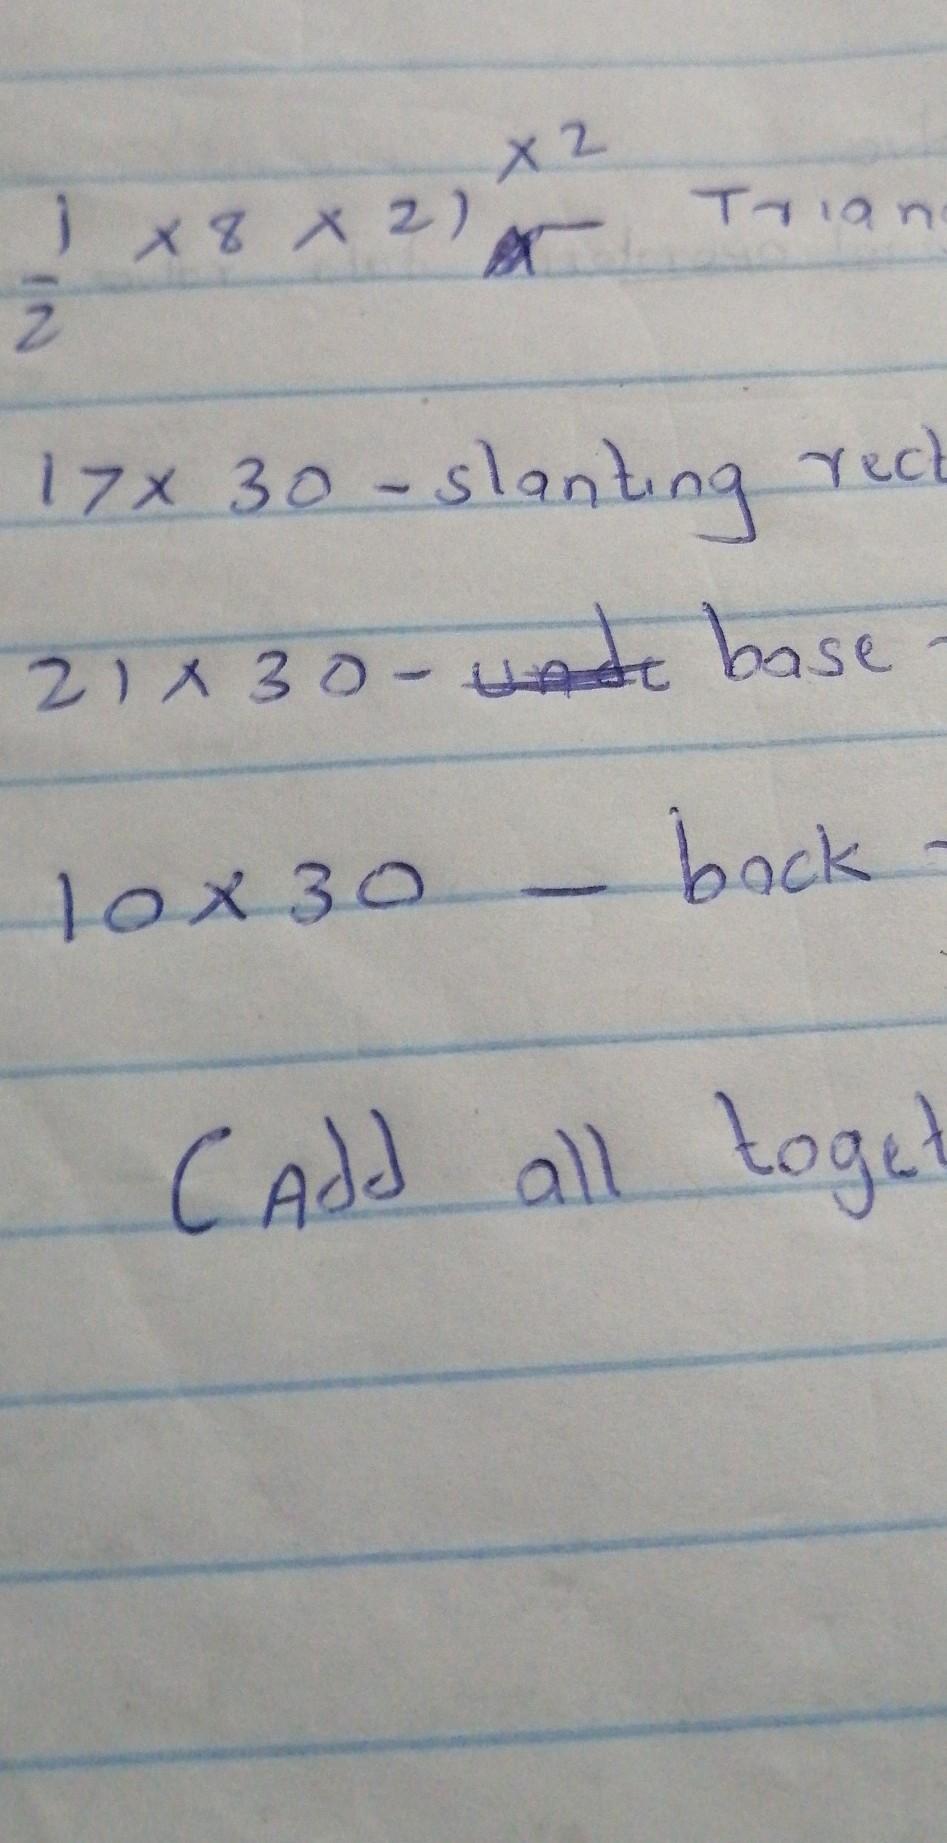 x 2
1/2 x 8 x 21 - Trian
17 x 30 - slanting rect
21 x 30 - base -
10 x 30 - back -
(Add all toget